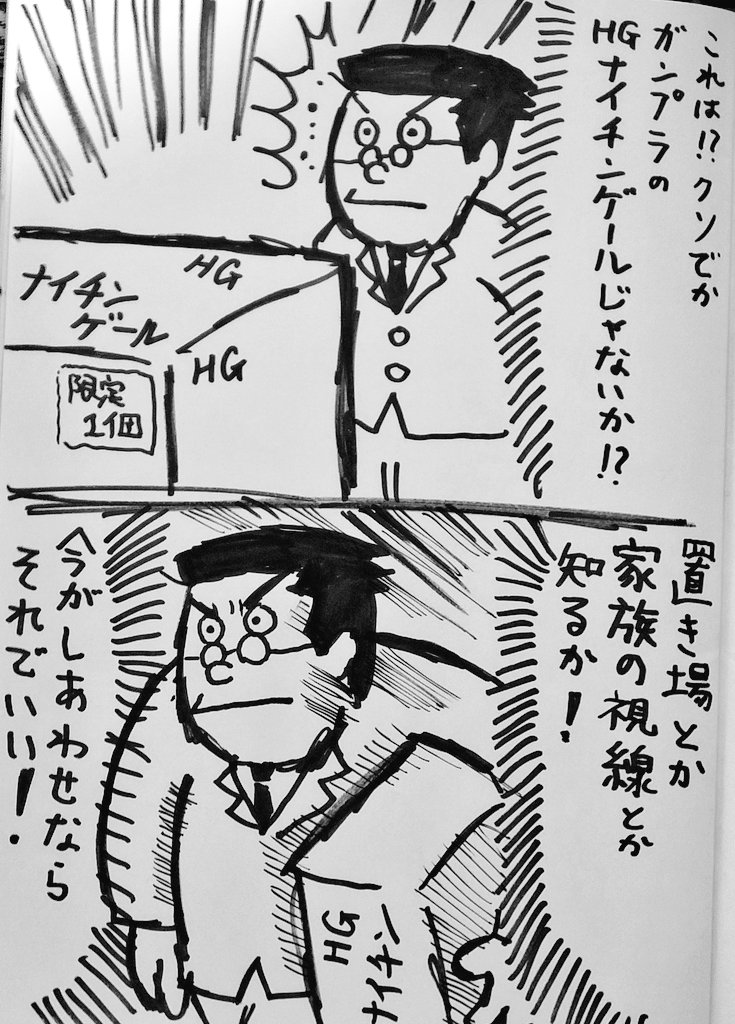 これは!?クソでか
ガンプラの
HGナイチンゲールじゃないか!?
HG
ナイチン
ゲール
HG
限定
1個
置き場とか
家族の視線とか
知るか!
HG
ナイチン
今がしあわせなら
それでいい!